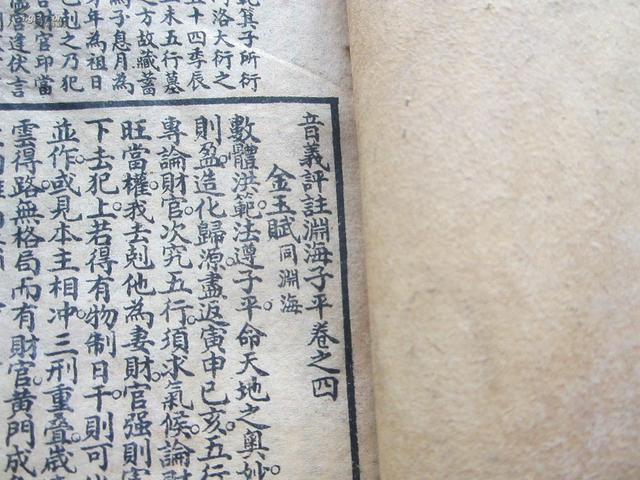 範箕子所衍
洛大衍之
五十四季辰
未五行墓
之方故藏蓄
為子息月為
年為祖日
則之乃犯
財官印當
宮逢伏言
音義評註淵海子平卷之四
金玉賦同淵海
數體洪範法遵子平命天地之奧妙
則盈造化歸源盡返寅申巳亥五行
專論財官次究五行須求氣候論財
旺當權我去剋他為妻財官强則害
下去犯上若得有物制日干則可
並作或見本主相冲三刑重疊歲
雲得路無格局而有財官黃門成